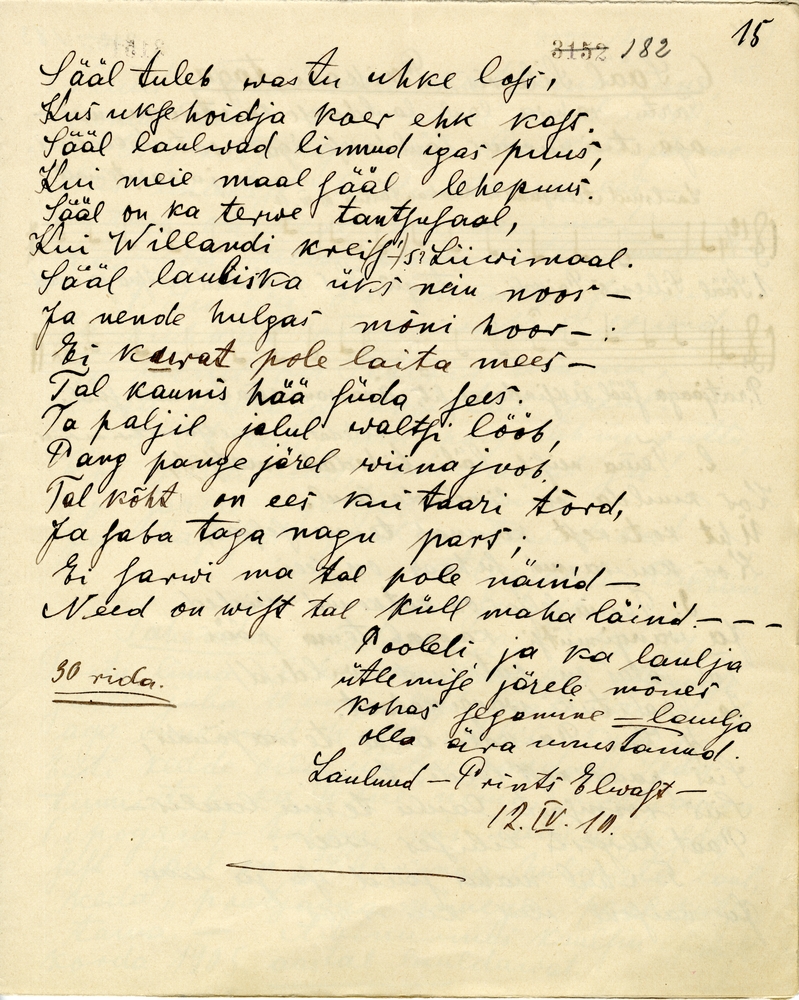 15
3152 182
Sääl tuleb wastu uhke loss,
Kus uksehoidja koer ehk kass.
Sääl laulwad linnud igas puus,
Kui meie maal sääl lehepuus.
Sääl on ka terwe tantsusaal,
Kui Willandi kreis Liiwimaal.
Sääl laubiska üks nein noos —
Ja nende hulgas mõni hoor — :
Ei kurat pole laita mees —
Tal kaunis hää süda sees.
Ta paljil jalul waltsi lööb,
Pang pange järel wiina joob.
Tal kõht on ees kui taari tõrd,
Ja saba taga nagu pars;
Ei sarwi ma tal pole näind —
Need on wist tal küll maha läind. — — —
Pooleli ja ka laulja
ütlemise järele mõnes
kohas segamine = laulja
olla ära unustanud.
30 rida.
Laulnud — Prints Elwast —
12. IV. 10.